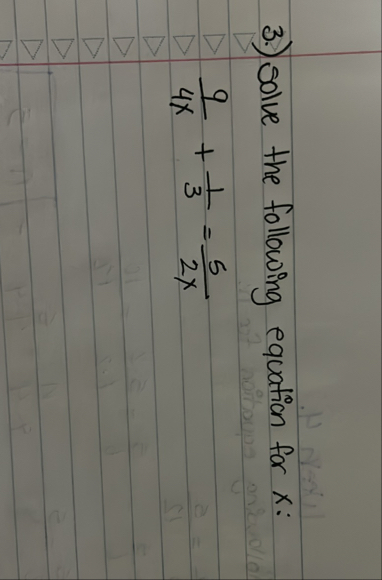 3.) Solve the following equation for x:
9/4x + 1/3 = 5/2x